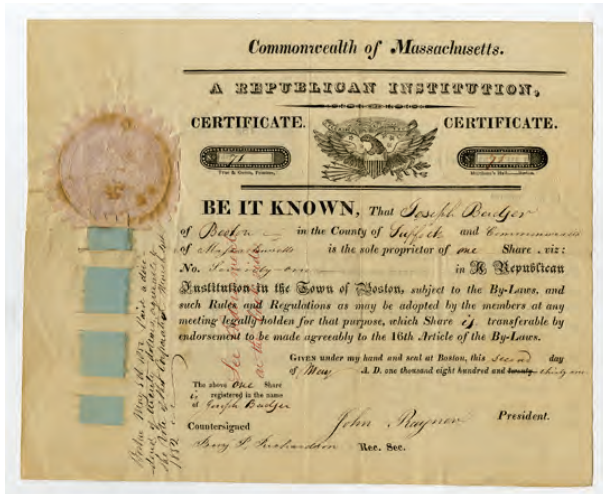 Commonwealth of Massachusetts.
A REPUBLICAN INSTITUTION,
CERTIFICATE. CERTIFICATE.
71 71
True & Greene, Printers, Merchants's Hall, Boston.
BE IT KNOWN, That Joseph Badger
of Boston in the County of Suffolk and Commonwealth
of Massachusetts is the sole proprietor of one Share , viz:
No. Seventy one in A Republican
Institution in the Town of Boston, subject to the By-Laws, and
such Rules and Regulations as may be adopted by the members at any
meeting legally holden for that purpose, which Share is transferable by
endorsement to be made agreeably to the 16th Article of the By-Laws.
GIVEN under my hand and seal at Boston, this second day
of May A. D. one thousand eight hundred and twenty thirty one
The above one Share
is registered in the name
of Joseph Badger
Countersigned John Rayner President.
Richardson Rec. Sec.
Boston May 3d 1852 Paid a
of dollars agreeably to
the Vote of the Corporation March
1852
See